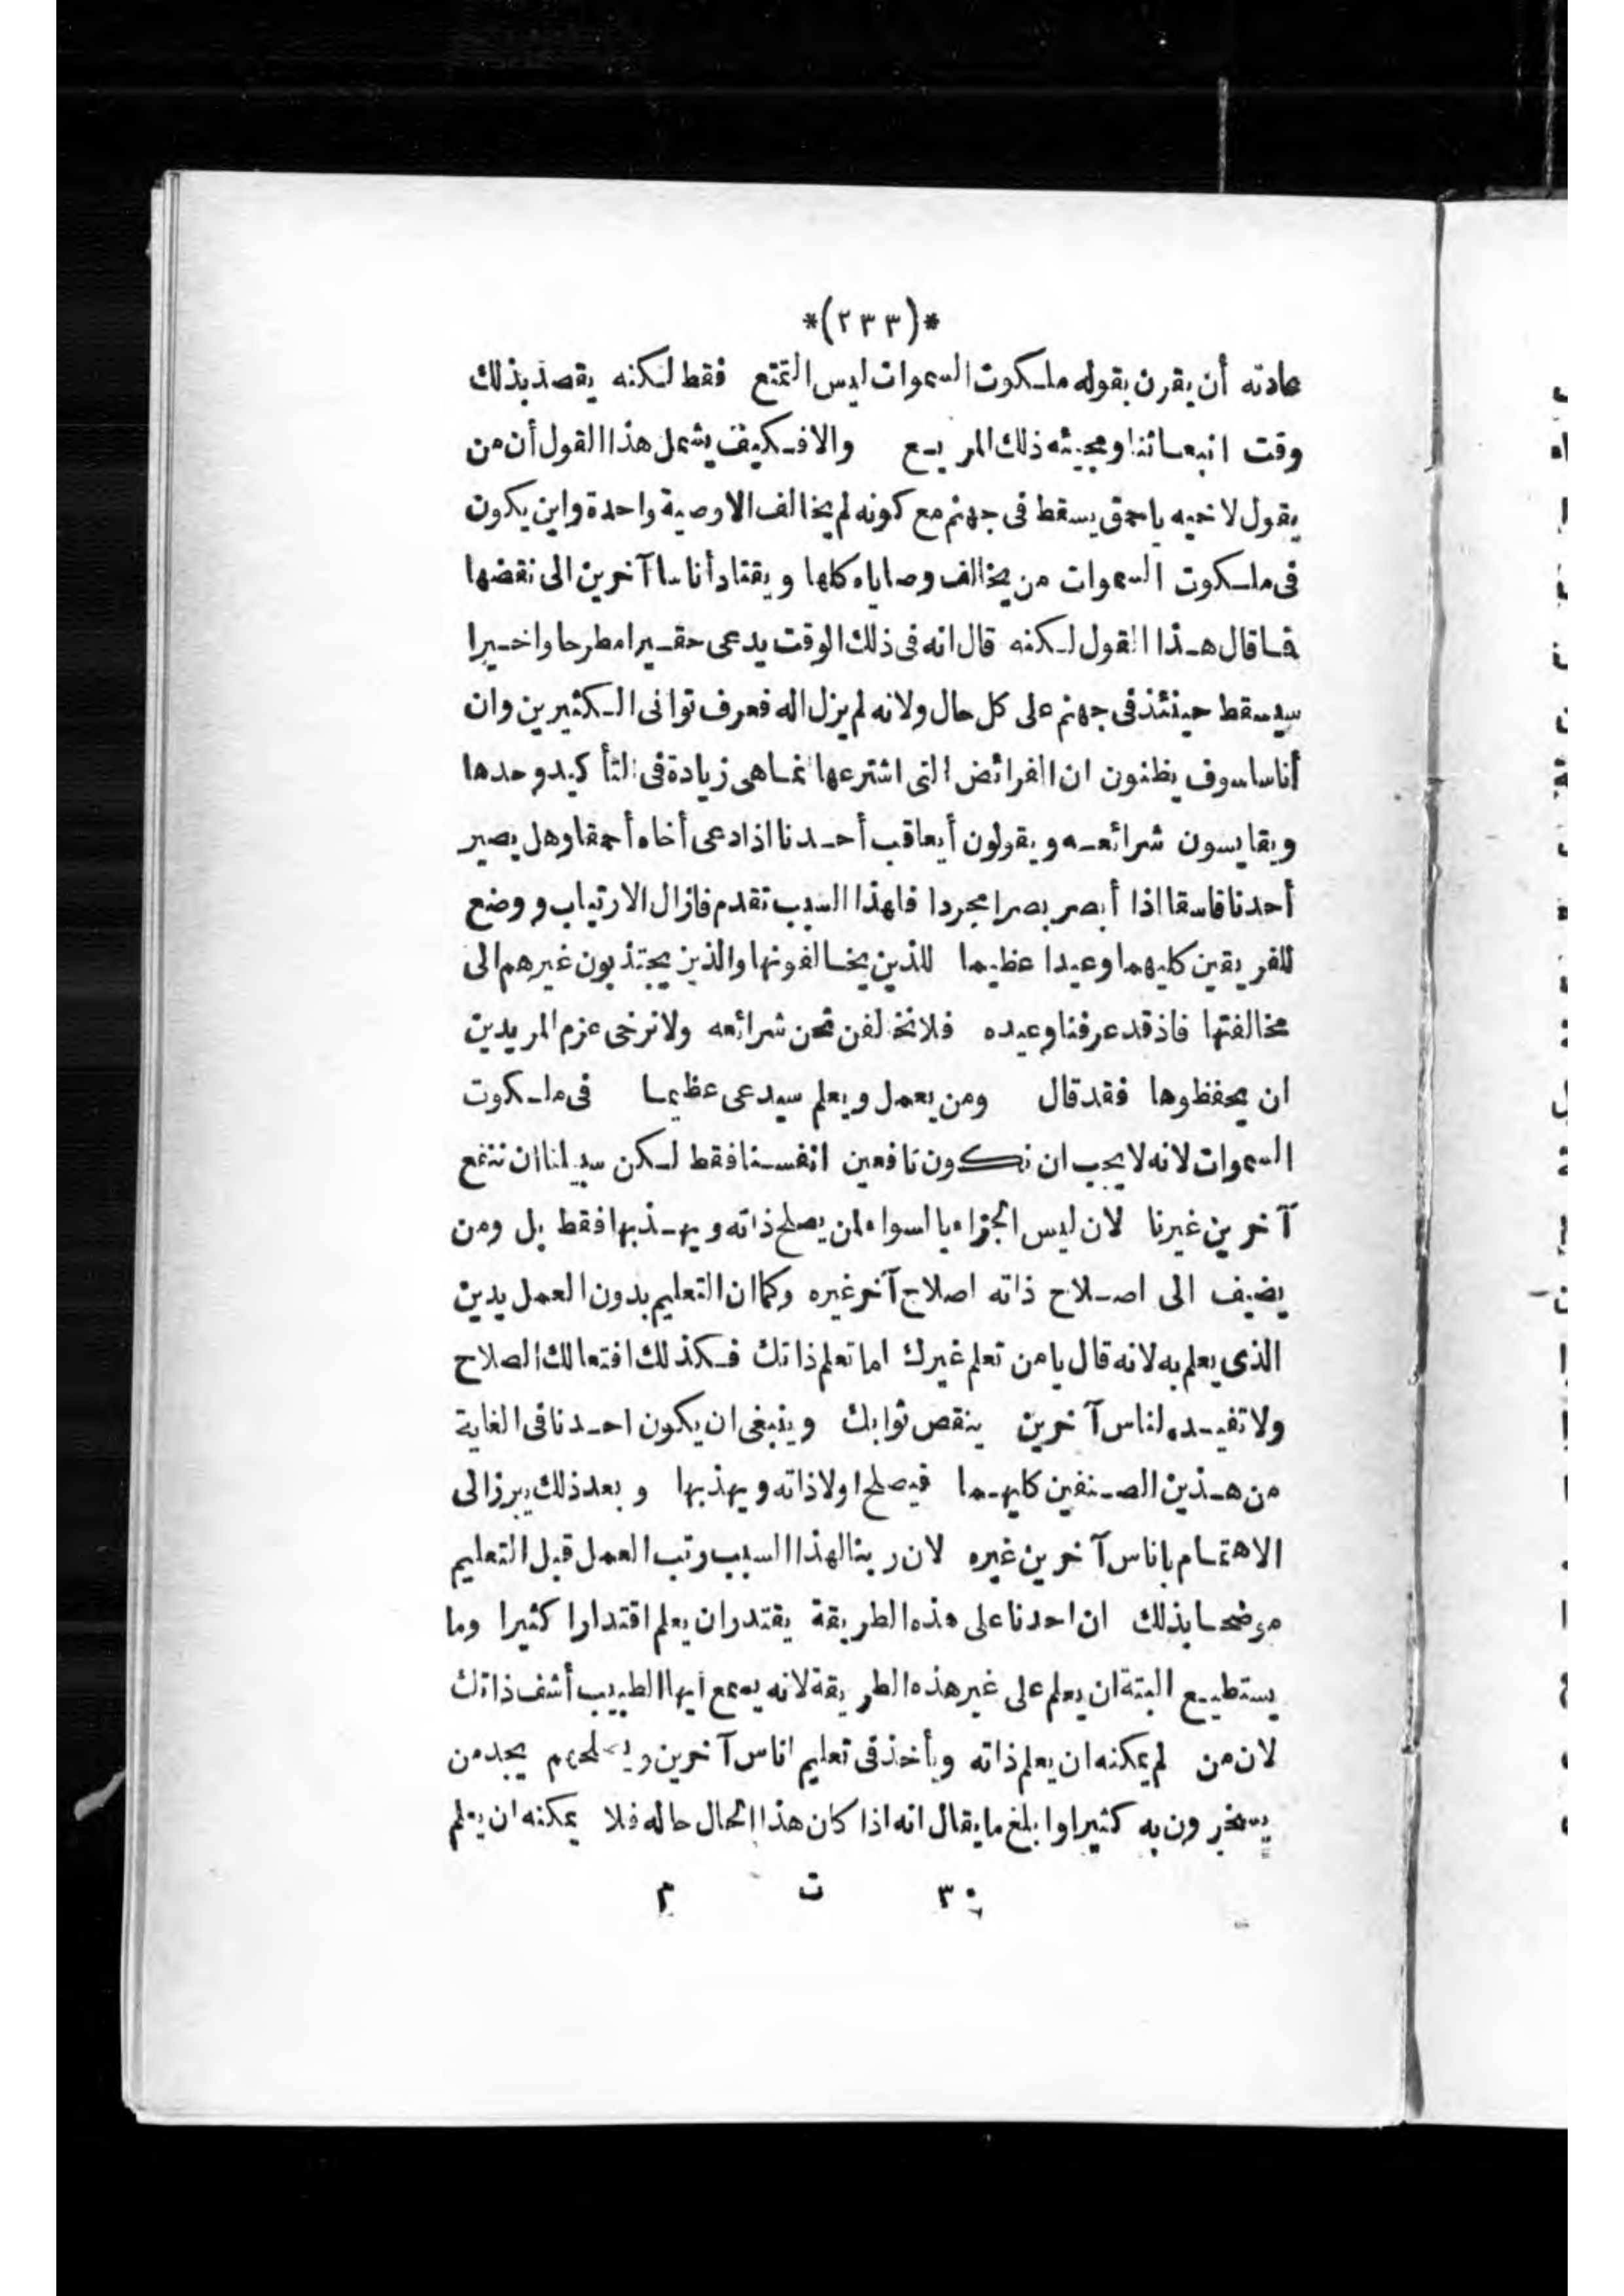 *(٢٣٣)*
عادته أن يقرن بقوله ملكوت السموات ليس التمتع فقط لكنه يقصد بذلك
وقت انبعاثنا ومجيئه ذلك المريع والا فكيف يشمل هذا القول أن من
يقول لاخيه يا احمق يسقط فى جهنم مع كونه لم يخالف الا وصية واحدة واين يكون
فى ملكوت السموات من يخالف وصاياه كلها ويقتاد أناسا آخرين الى نقضها
فما قال هذا القول لكنه قال انه فى ذلك الوقت يدعى حقيرا مطرحا واخيرا
سيسقط حينئذ فى جهنم على كل حال ولانه لم يزل اله فعرف توانى الكثيرين وان
أناسا سوف يظنون ان الفرائض التى اشترعها انما هى زيادة فى التأكيد وحدها
ويقايسون شرائعه ويقولون أيعاقب أحدنا اذا دعى أخاه أحمقا وهل يصير
أحدنا فاسقا اذا أبصر بصرا مجردا فلهذا السبب تقدم فازال الارتياب ووضع
للفريقين كليهما وعيدا عظيما للذين يخالفونها والذين يجتذبون غيرهم الى
مخالفتها فاذ قد عرفنا وعيده فلا نخالفن نحن شرائعه ولا نرخى عزم المريدين
ان يحفظوها فقد قال ومن يعمل ويعلم سيدعى عظيما فى ملكوت
السموات لانه لا يجب ان نكون نافعين انفسنا فقط لكن سبيلنا ان ننفع
آخرين غيرنا لان ليس الجزاء بالسواء لمن يصلح ذاته ويهذبها فقط بل ومن
يضيف الى اصلاح ذاته اصلاح آخر غيره وكما ان التعليم بدون العمل يدين
الذى يعلم به لانه قال يا من تعلم غيرك اما تعلم ذاتك فكذلك افتعالك الصلاح
ولا تفيده لناس آخرين ينقص ثوابك وينبغى ان يكون احدنا فى الغاية
من هذين الصنفين كليهما فيصلح اولا ذاته ويهذبها وبعد ذلك يبرز الى
الاهتمام باناس آخرين غيره لان ربنا لهذا السبب رتب العمل قبل التعليم
موضحا بذلك ان احدنا على هذه الطريقة يقتدر ان يعلم اقتدارا كثيرا وما
يستطيع البتة ان يعلم على غير هذه الطريقة لانه يسمع ايها الطبيب أشف ذاتك
لان من لم يمكنه ان يعلم ذاته ويأخذ فى تعليم اناس آخرين ويصلحهم يجد من
يسخرون به كثيرا وابلغ ما يقال انه اذا كان هذا الحال حاله فلا يمكنه ان يعلم
٣٠ ت ٢